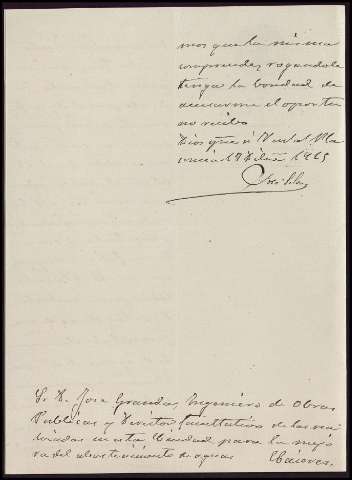 mos que la misma
comprende, rogandole
tenga la bondad de
acusarme el oportu
no recibo
Dios gue á V. Pla
sencia 1
José
Sr. D. Jose Granda, Ingeniero de Obras
Publicas y Director facultativo de las rea
lizadas en esta Ciudad para la mejo
ra del abastecimiento de aguas Cáceres.